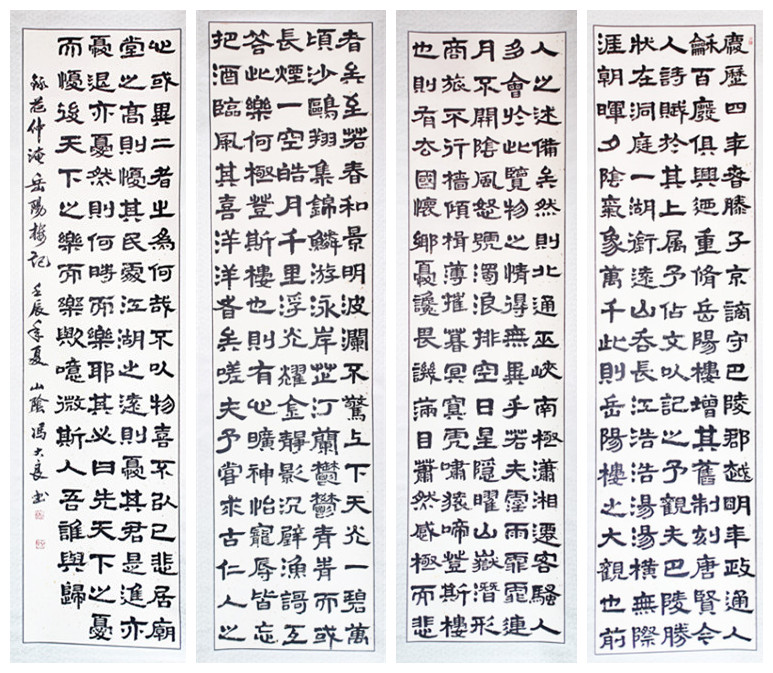 慶歷四年春滕子京謫守巴陵郡越明年政通人
龢百廢俱興迺重脩岳陽樓增其舊制刻唐賢今
人詩賦於其上属予佔文以記之予觀夫巴陵勝
狀在洞庭一湖銜遠山吞長江浩浩湯湯橫無際
涯朝暉夕陰氣象萬千此則岳陽樓之大觀也前
人之述備矣然則北通巫峽南極瀟湘遷客騷人
多會於此覽物之情得無異乎若夫霪雨霏霏連
月不開陰風怒號濁浪排空日星隱曜山嶽潛形
商旅不行檣傾楫薄摧暮冥寞虎嘯猿啼登斯樓
也則有去國懷鄉憂讒畏譏滿目蕭然感極而悲
者矣至若春和景明波瀾不驚上下天光一碧萬
頃沙鷗翔集錦鱗游泳岸芷汀蘭鬱鬱青青而或
長煙一空皓月千里浮光耀金靜影沉璧漁謌互
答此樂何極登斯樓也則有心曠神怡寵辱皆忘
把酒臨風其喜洋洋者矣嗟夫予嘗求古仁人之
心或異二者之為何哉不以物喜不以己悲居廟
堂之高則懮其民處江湖之遠則憂其君是進亦
憂退亦憂然則何時而樂耶其必曰先天下之憂
而懮後天下之樂而樂歟噫微斯人吾誰與歸
錄范仲淹岳陽樓記 壬辰年夏 山陰馮大良書